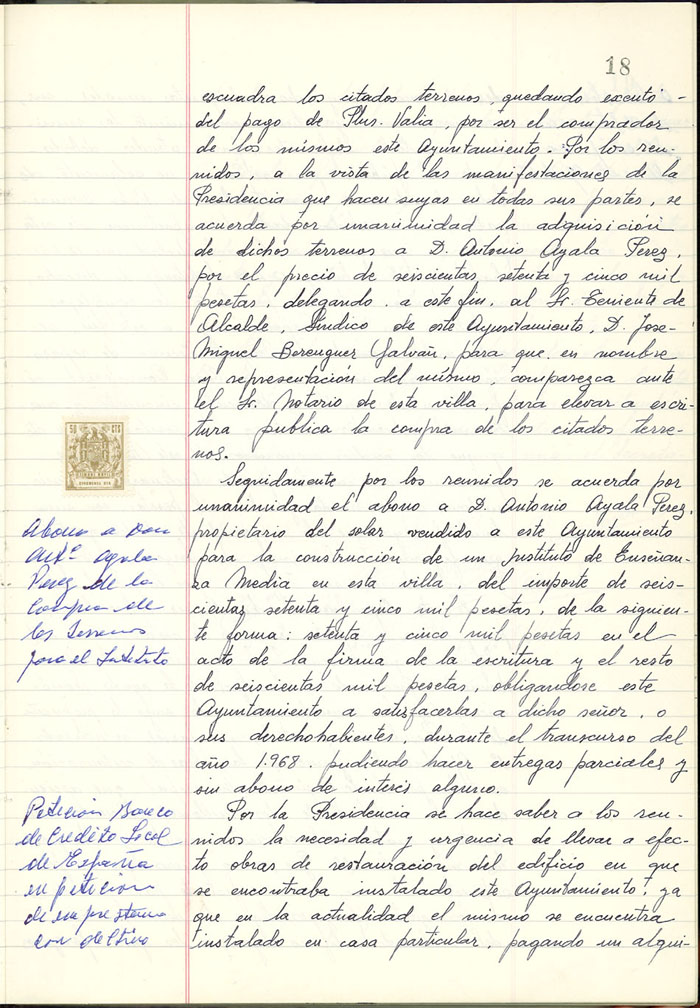 18
escuadra los citados terrenos, quedando excento
del pago de Plus-Valia, por ser el comprador
de los mismos este Ayuntamiento. Por los reu-
nidos, a la vista de las manifestaciones de la
Presidencia que hacen suyas en todas sus partes, se
acuerda por unanimidad la adquisición
de dichos terrenos a D. Antonio Ayala Perez,
por el precio de seiscientas setenta y cinco mil
pesetas, delegando a este fin, al Sr. Teniente de
Alcalde, Sindico de este Ayuntamiento, D. Jose-
Miguel Berenguer Galvañ, para que en nombre
y representación del mismo, comparezca ante
el Sr. Notario de esta villa, para elevar a escri-
tura publica la compra de los citados terre-
nos.
50 CTS
Seguidamente por los reunidos se acuerda por
unanimidad el abono a D. Antonio Ayala Perez,
propietario del solar vendido a este Ayuntamiento
para la construcción de un Instituto de Enseñan-
za Media en esta villa, del importe de seis-
cientas setenta y cinco mil pesetas, de la siguien-
te forma: setenta y cinco mil pesetas en el
acto de la firma de la escritura y el resto
de seiscientas mil pesetas, obligandose este
Ayuntamiento a satisfacerlas a dicho señor, o
sus derechohabientes, durante el transcurso del
año 1.968, pudiendo hacer entregas parciales y
sin abono de interés alguno.
Abono a Don
Antº Ayala
Perez de la
compra de
los terrenos
para el Instituto
Por la Presidencia se hace saber a los reu-
nidos la necesidad y urgencia de llevar a efec-
to obras de restauración del edificio en que
se encontraba instalado este Ayuntamiento, ya
que en la actualidad el mismo se encuentra
instalado en casa particular, pagando un alqui-
Petición Banco
de Credito Local
de España
en peticion
de un prestamo
con destino